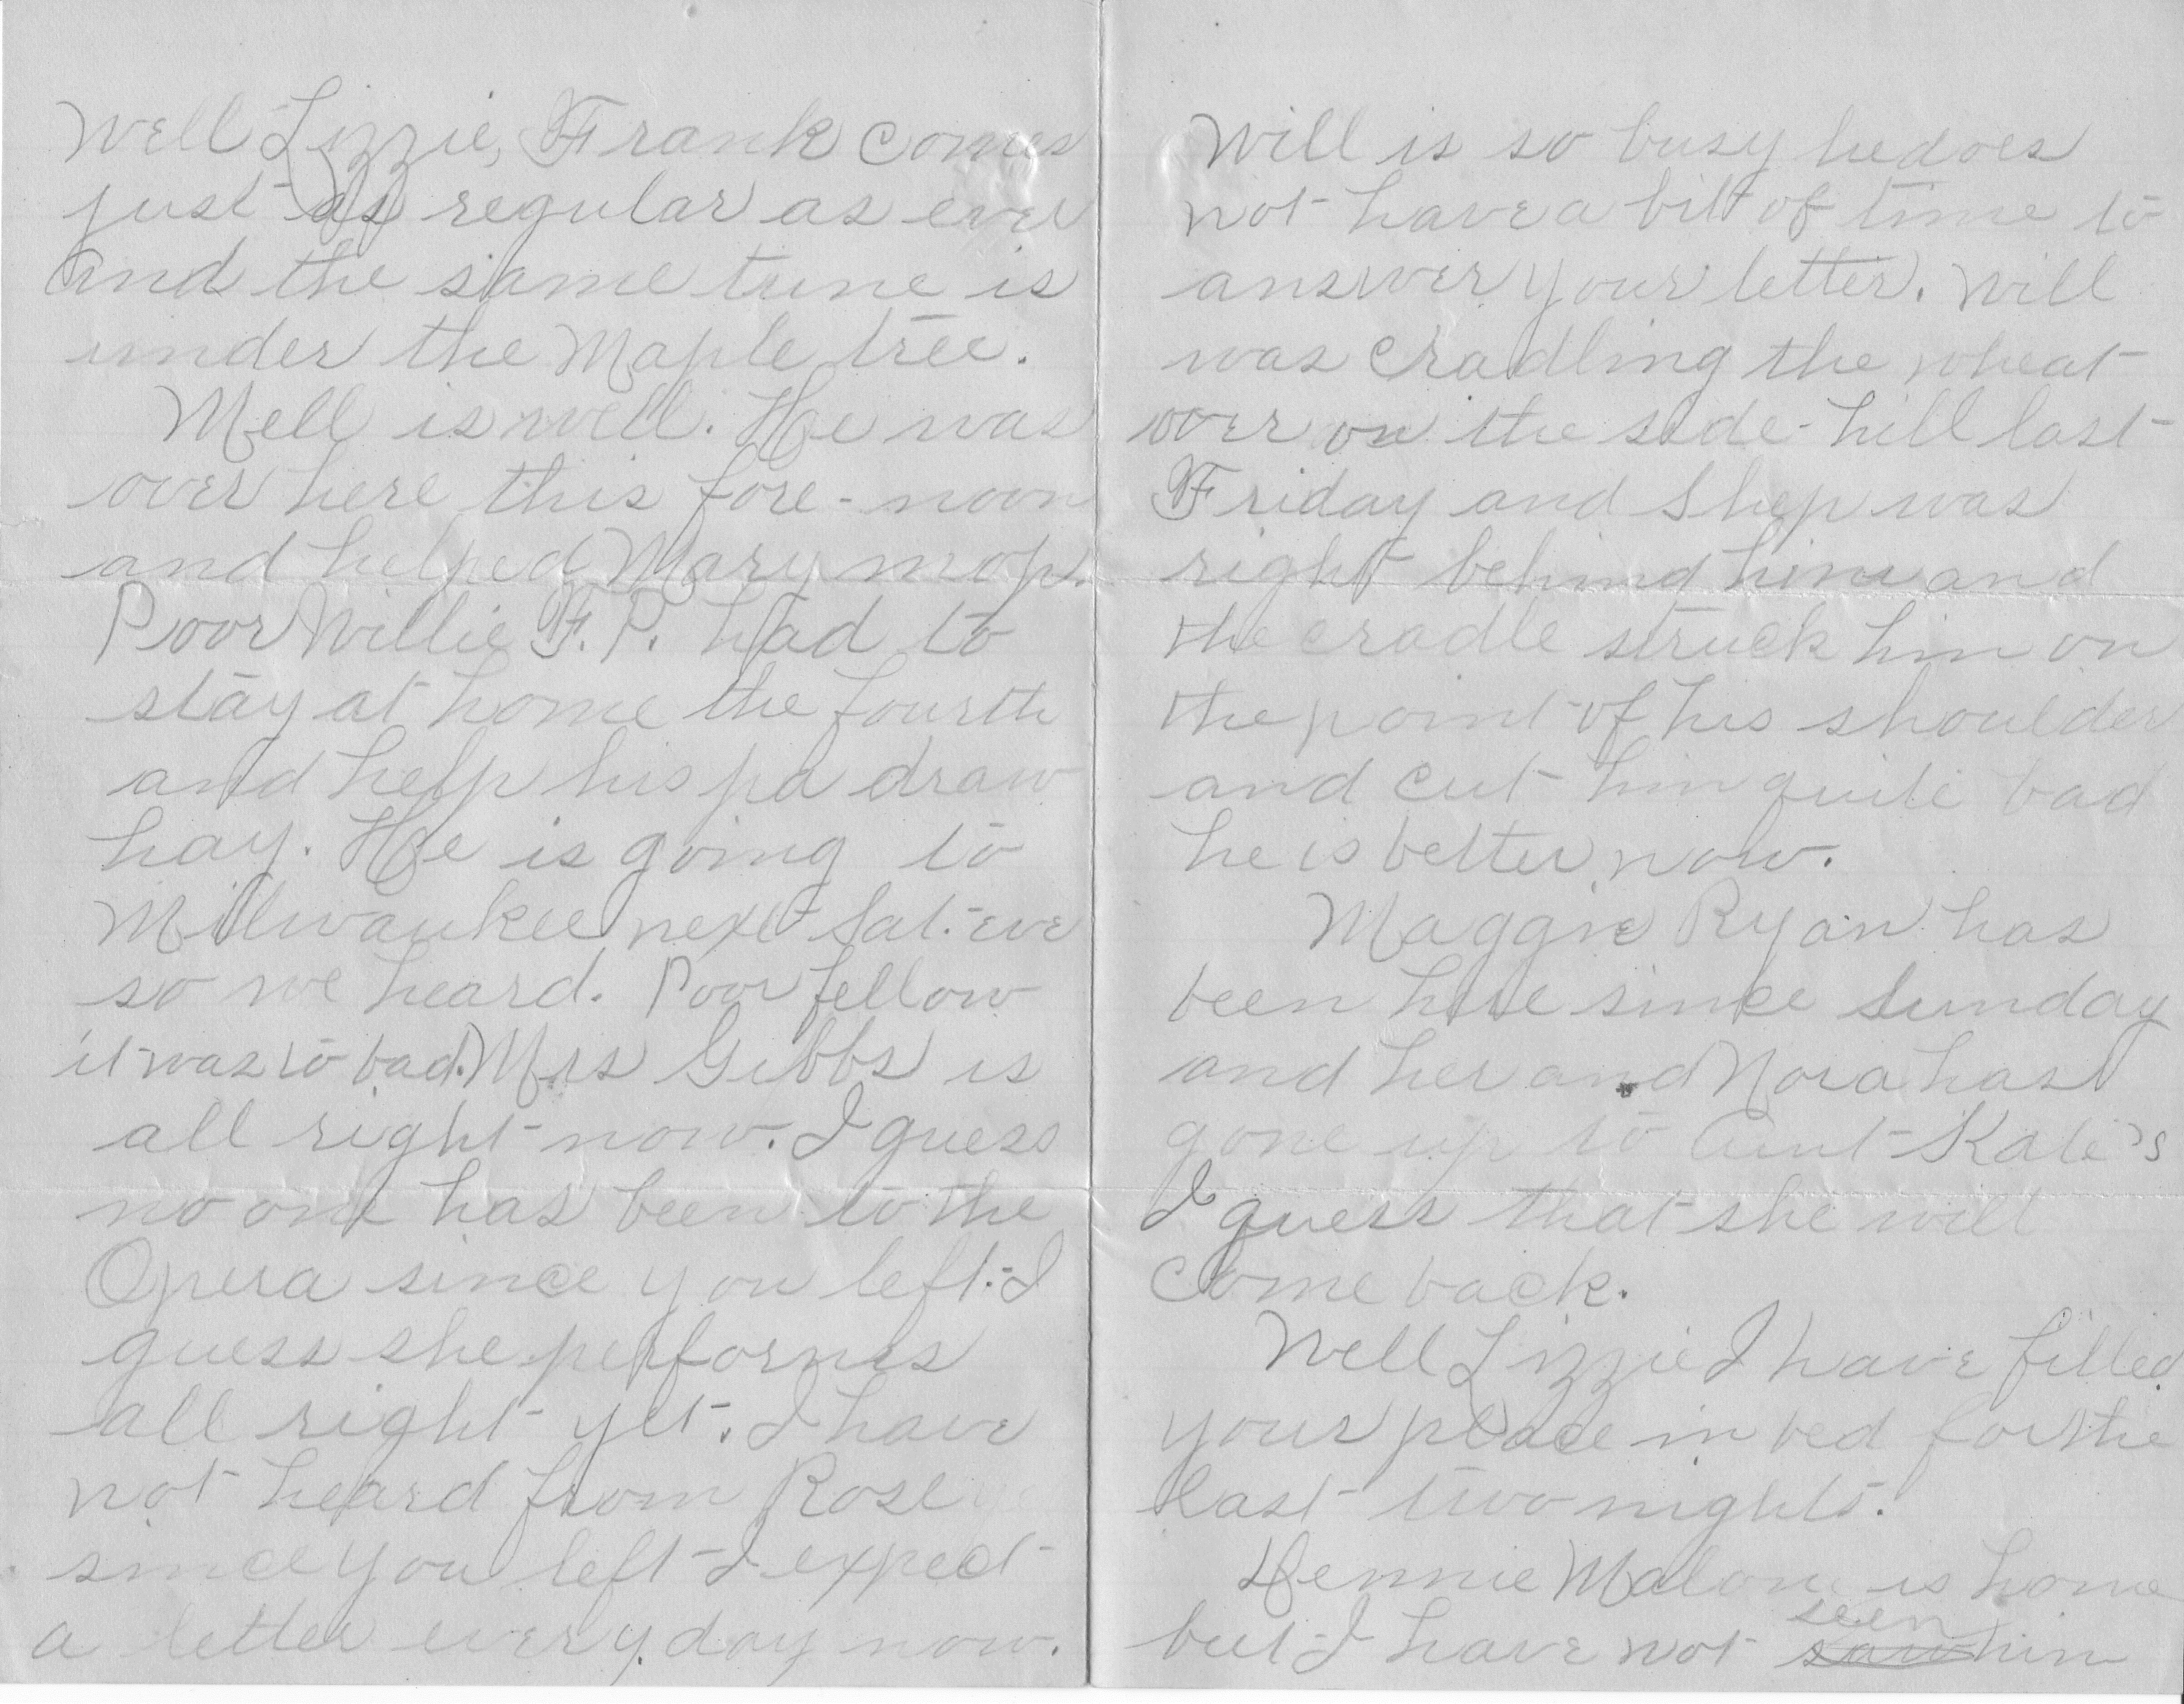 Well Lizzie, Frank comes
just as regular as ever
and the same tune is
under the Maple tree.
Mell is well. He was
over here this fore-noon
and helped Mary mop.
Poor Willie F. P. had to
stay at home the fourth
and help his pa draw
hay. He is going to
Milwaukee next Sat. eve
so we heard. Poor fellow
it was to bad. Mrs Gibbs is
all right now. I guess
no one has been to the
Opera since you left. I
guess she performs
all right yet. I have
not heard from Rose
since you left I expect
a letter every day now.
Will is so busy he does
not have a bit of time to
answer your letter. Will
was cradling the wheat
over on the side-hill last
Friday and Shep was
right behind him and
the cradle struck him on
the point of his shoulder
and cut him quite bad
he is better now.
Maggie Ryan has
been here since Sunday
and her and Nora has
gone up to Aunt Kate's
I guess that she will
come back.
Well Lizzie I have filled
your place in bed for the
last two nights.
Dennie Malone is home
seen
but I have not saw him